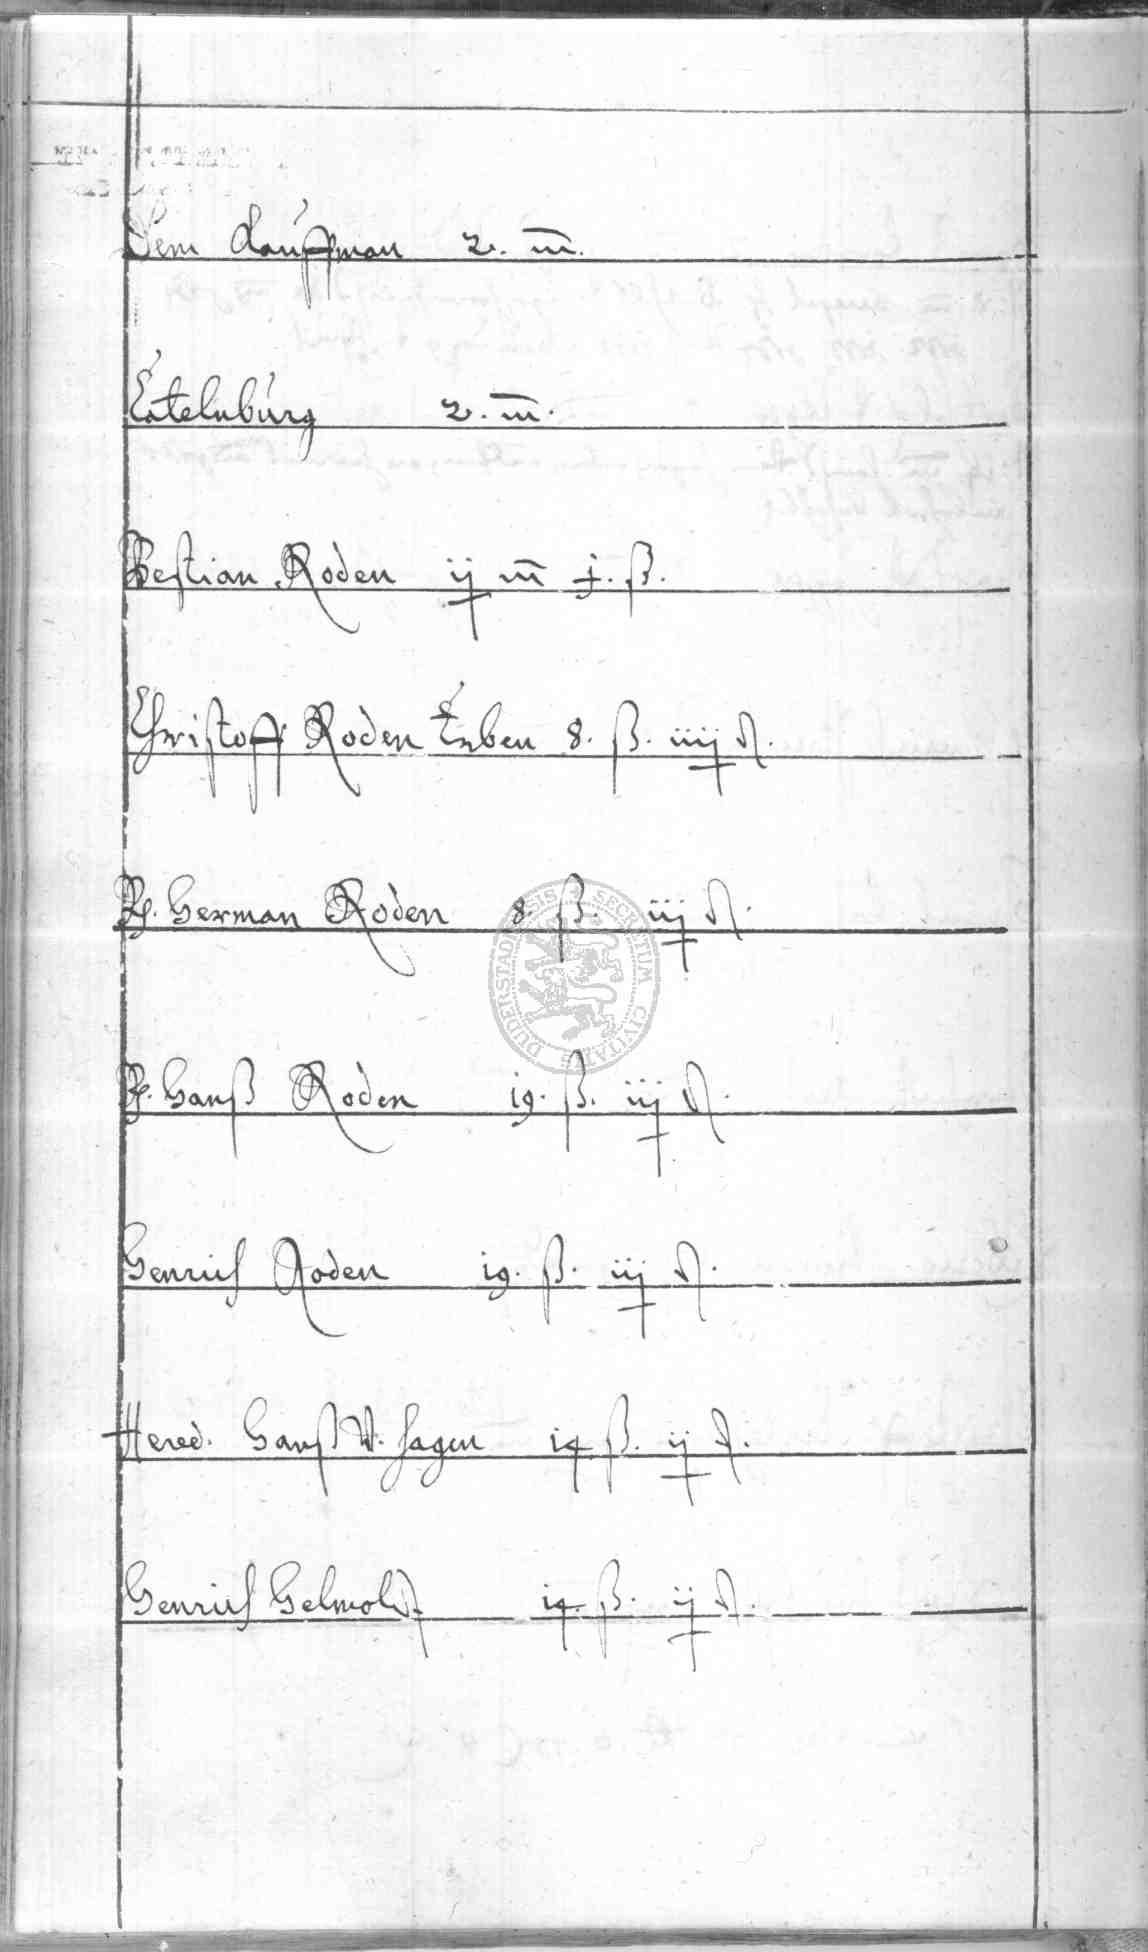 Dem Kauffman 2. m.
Catelnburg 2. m.
Bestian Roden ij m j. ß.
Christoff Roden Erben 8. ß. iiij ₰.
H. Herman Roden 8. ß. iij ₰.
H. Hanß Roden 19. ß. iij ₰.
Henrich Roden 19. ß. iij ₰.
Hered. Hanß V. Hagen 14 ß. ij ₰.
Henrich Helmoldt 14. ß. ij ₰.
SECRETUM CIVITATIS DUDERSTADIENSIS